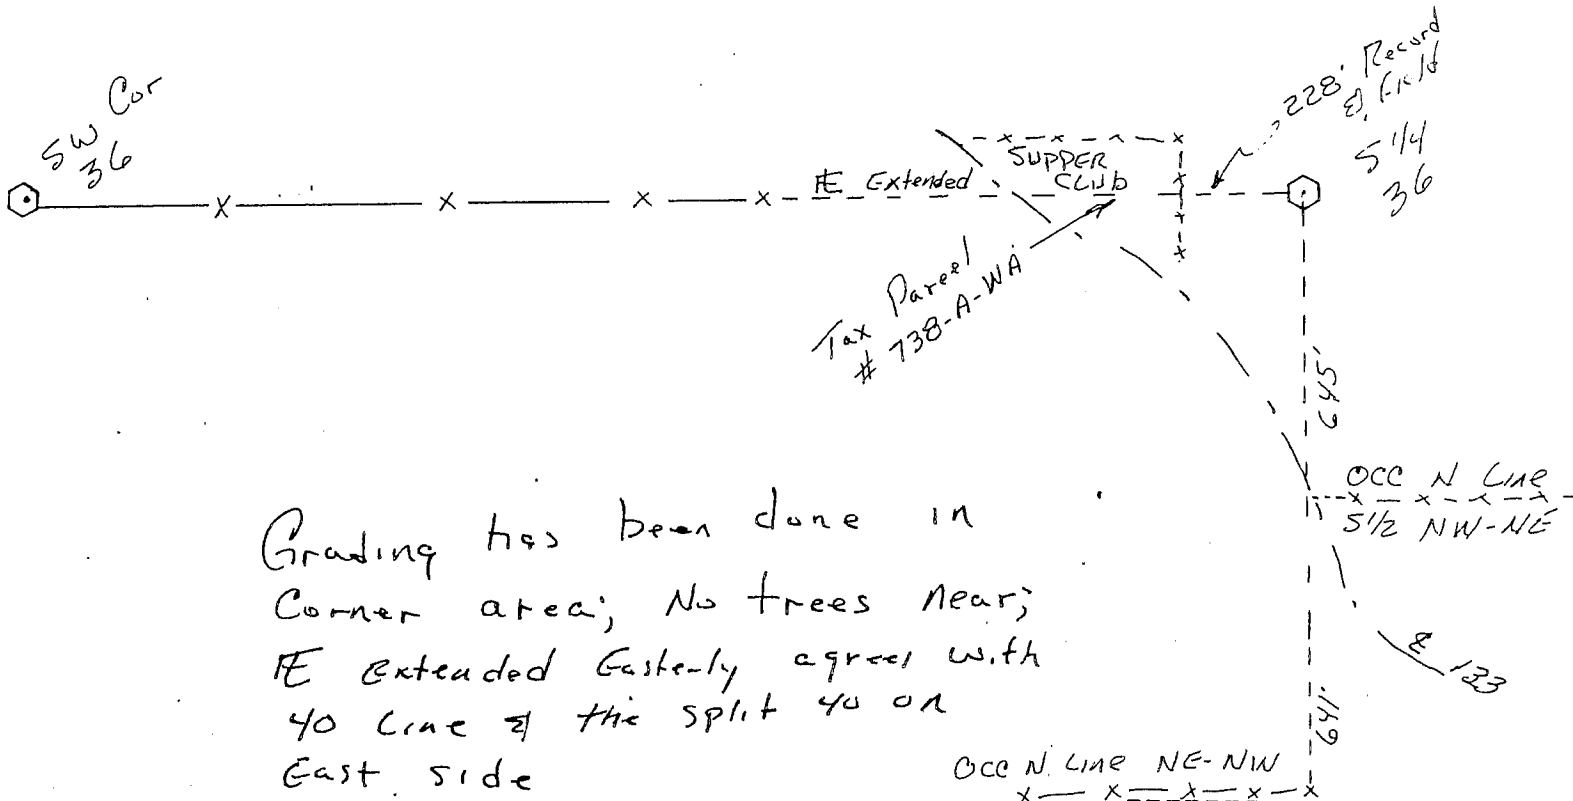 SW Cor
36
FE Extended
SUPPER
CLUB
228' Record
& Field
S 1/4
36
Tax Parcel
# 738-A-WA
645'
OCC N Line
S 1/2 NW-NE
Grading has been done in
Corner area; No trees near;
FE Extended Easterly agrees with
40 Line & the split 40 on
East side
℄ 133
641'
OCC N. Line NE-NW